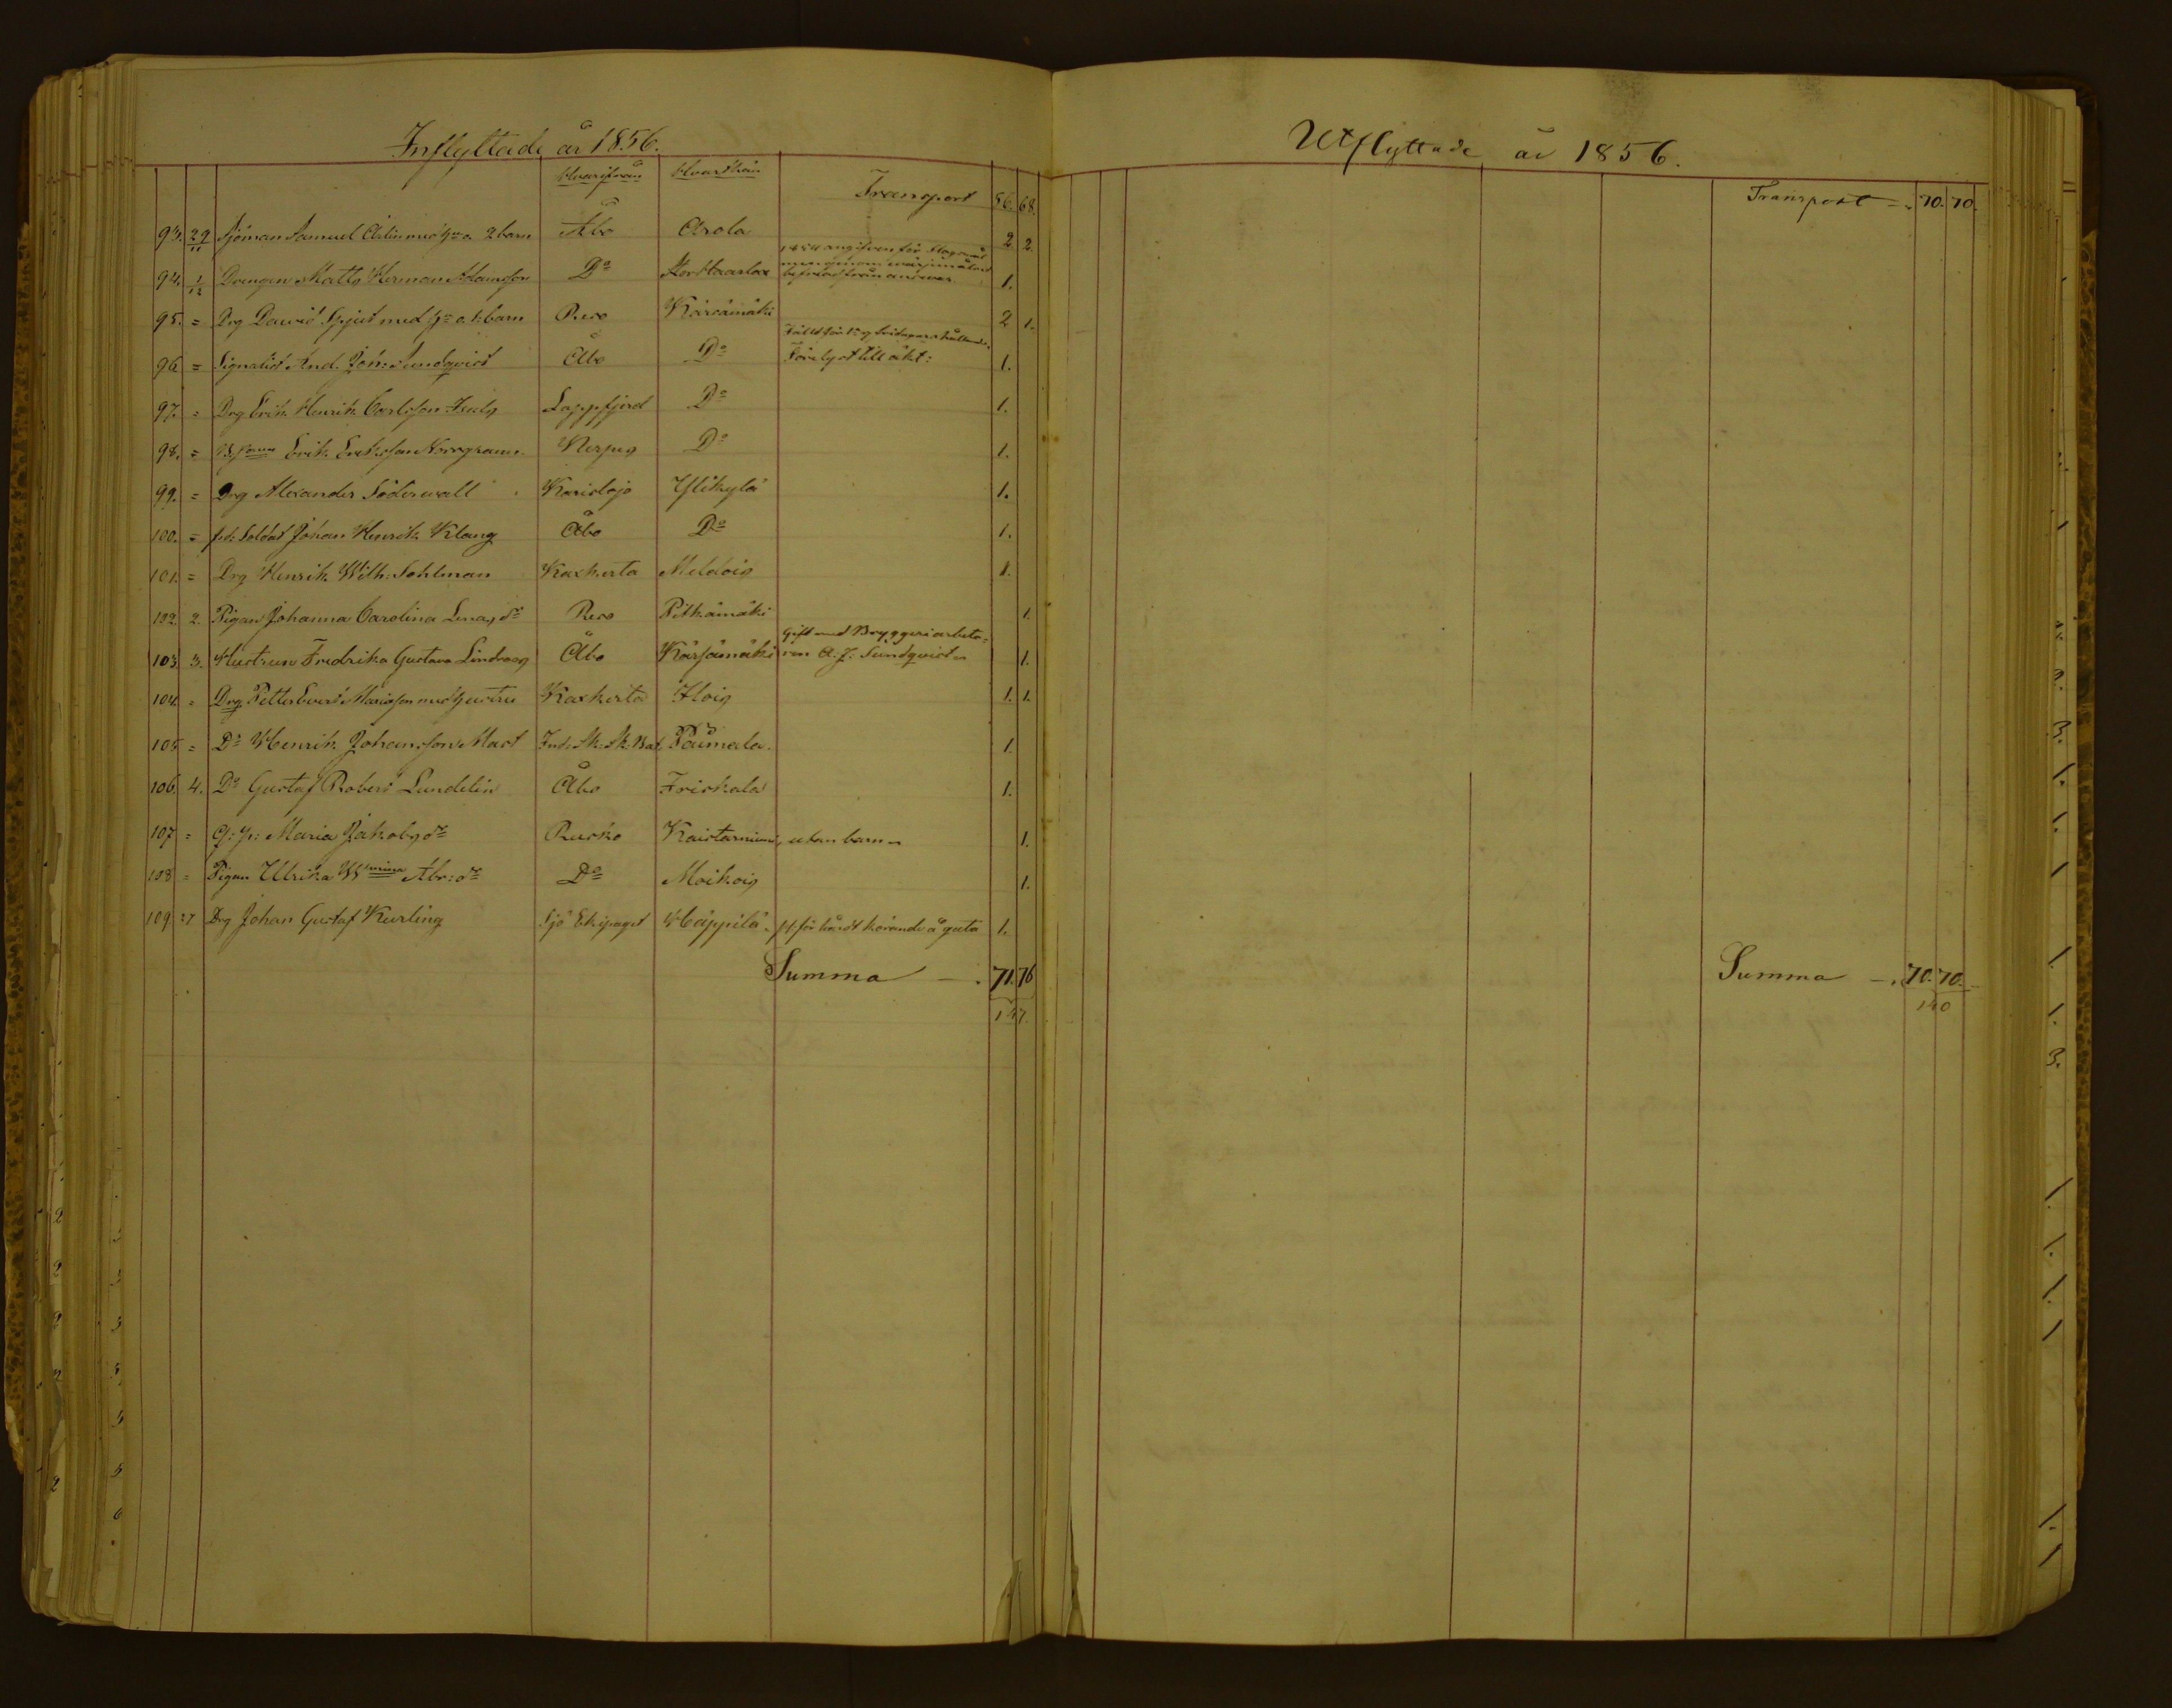 Inflyttade år 1856.
Hvarifrån Hvarthän Transport 56. 68.
93. 29/11 Sjöman Samuel med h:u o. 2 barn Åbo Arola 2 2.
94. 1/12 Drengen Matts Herman Adamsson D:o Stor Haarlax 1854 angifven för
befriad från answar 1.
95. = Drg David Spjut med h:u o. 1. barn Reso Kärsämäki 2 1.
96 = Signalist And. Joh: Sundqvist Åbo D:o Förlyst till äkt: 1.
97. = Drg Erik Henrik Carlsson Lappfjerd D:o 1.
98. = Erik Eriksson Norrgrann Nerpes D:o 1.
99. = Drg Alexander Söderwall Karislojo Ylikylä 1.
100. = f.d. Soldat Johan Henrik Klang Åbo D:o 1.
101. = Drg Henrik Wilh: Sohlman Kaxkerta Meldois 1.
102. 2. Pigan Johanna Carolina d:r Reso Pitkämäki 1.
103. 3. Hustrun Fredrika Gustava Lindroos Åbo Kärsämäki Gift med Bryggeriarbeta-
ren A. J. Sundqvist 1.
104. = Drg Petter Evert med hustru Kaxkerta Ilois 1. 1.
105 = D:o Henrik Johansson Mast Ind. Sk. Sk. Bat. Paimala. 1.
106 4. D:o Gustaf Robert Lundelin Åbo Friskala 1.
107 = Maria Jakobsd:r Rusko Kaistarniemi, utan barn 1.
108 = Pigan Ulrika W:mina Abr:d:r D:o Moikois 1.
109. 27 Drg Johan Gustaf Kurling Sjö Ekipaget Häppilä. för hårdt körande å gata 1.
Summa — . 71. 76
147.
Utflyttade år 1856.
Transport — . 70. 70.
Summa — . 70. 70.
140